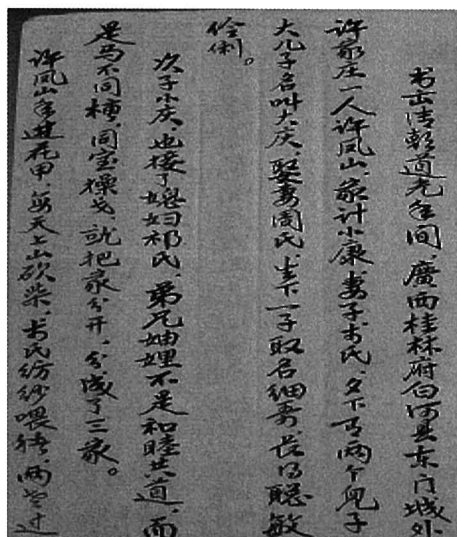 书出清朝道光年间,廣西桂林府白河县东门城外
许家庄一人许凤山,家计小康,妻子李氏,夕下有两个儿子
大儿子名叫大庆,娶妻周氏,生下一子取名细寿,长得聪敏
伶俐。
次子小庆,也接了媳妇祁氏,弟兄妯娌不是和睦共道,而
是马不同槽,同室操戈,就把家分开,分成了三家。
许凤山年进花甲,每天上山砍柴,李氏纺纱喂猪,两老过